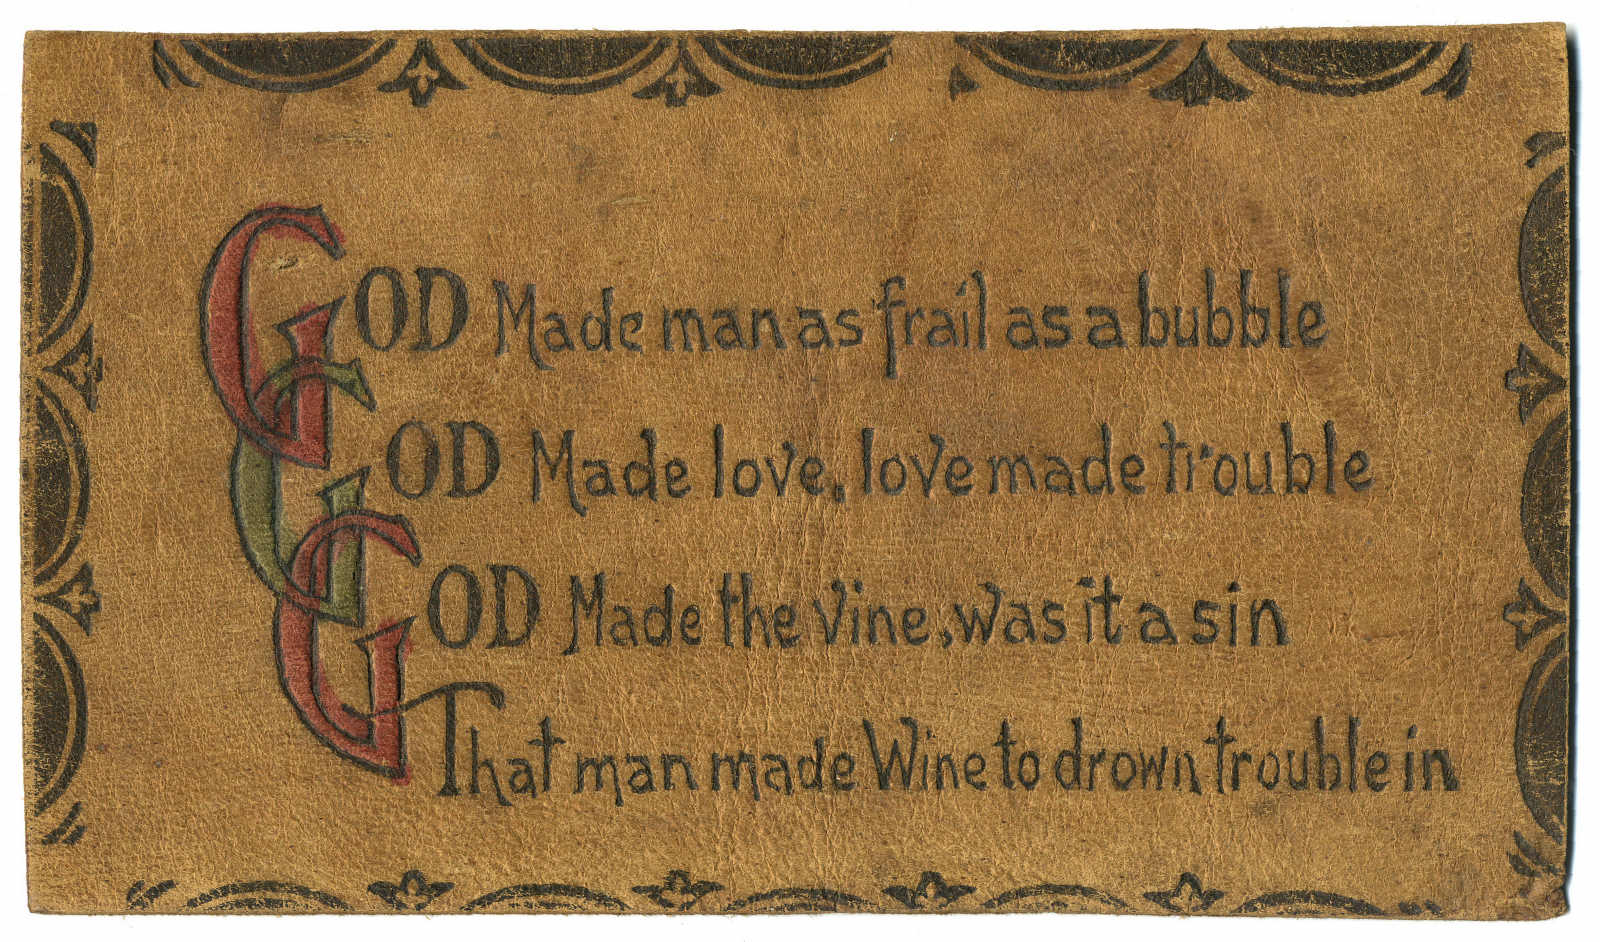 GOD Made man as frail as a bubble
GOD Made love, love made trouble
GOD Made the Vine, was it a sin
That man made Wine to drown trouble in